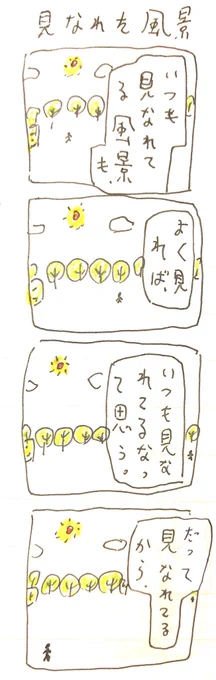 見なれた風景
いつも
見なれて
る風景
も、
よく見
れば、
いつも見な
れてるなっ
て思う。
だって
見なれてる
から。